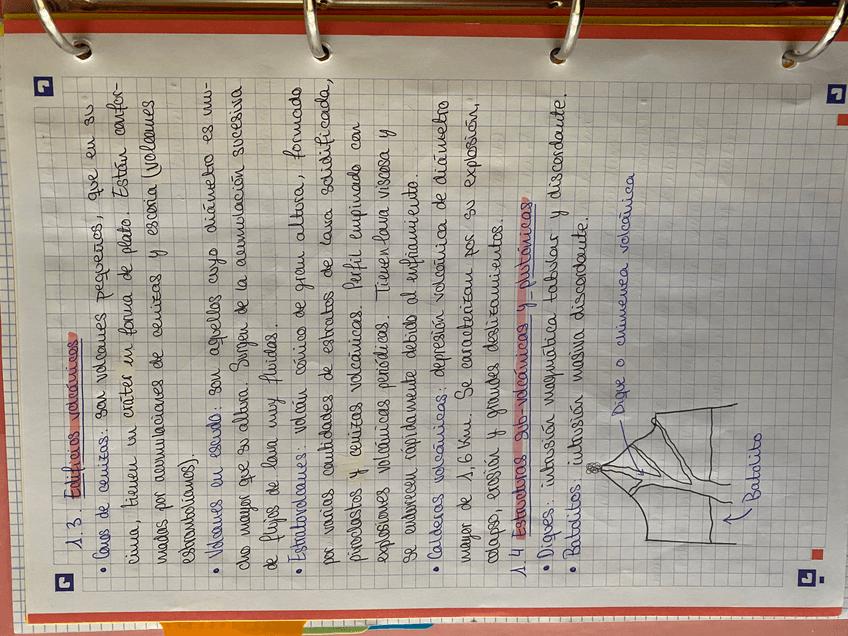 1.3. Edificios volcánicos
• Conos de cenizas: son volcanes pequeños, que en su
cima, tienen un cráter en forma de plato. Están confor-
madas por acumulaciones de cenizas y escoria (volcanes
estrombolianos).
• Volcanes en escudo: son aquellos cuyo diámetro es mu-
cho mayor que su altura. Surgen de la acumulación sucesiva
de flujos de lava muy fluidas.
• Estratovolcanes: volcán cónico de gran altura, formado
por varias cantidades de estratos de lava solidificada,
piroclastos y cenizas volcánicas. Perfil empinado con
explosiones volcánicas periódicas. Tienen lava viscosa y
se endurecen rápidamente debido al enfriamiento.
• Calderas volcánicas: depresión volcánica de diámetro
mayor de 1,6 Km. Se caracterizan por su explosión,
colapso, erosión y grandes deslizamientos.
1.4 Estructuras sub-volcánicas y plutónicas
• Diques: intrusión magmática tabular y discordante.
• Batolitos: intrusión masiva discordante.
Dique o chimenea volcánica
Batolito